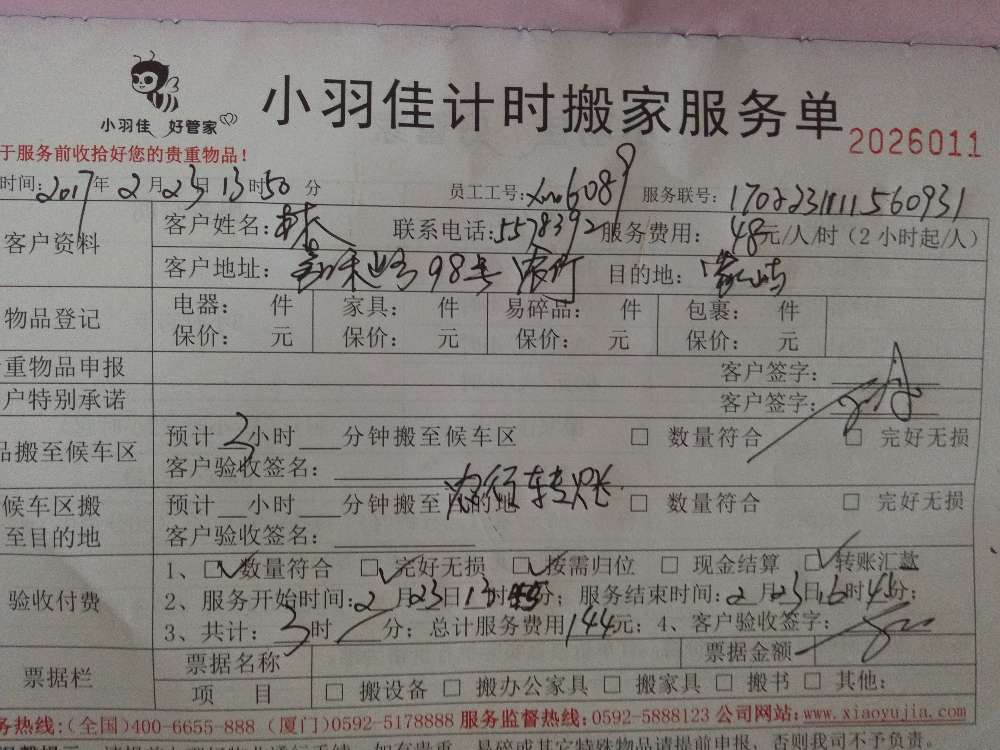 小羽佳 好管家
小羽佳计时搬家服务单 2026011
于服务前收拾好您的贵重物品！
时间：2017年2月23日13时50分 员工工号：xm6089 服务联号：17022311111560931
客户资料
客户姓名：林 联系电话：5578392 服务费用：48元/人/时（2小时起/人）
客户地址： 98号 目的地：
物品登记
电器： 件 家具： 件 易碎品： 件 包裹： 件
保价： 元 保价： 元 保价： 元 保价： 元
重物品申报 客户签字：
户特别承诺 客户签字：
品搬至候车区
预计2小时 分钟搬至候车区 □ 数量符合 □ 完好无损
客户验收签名：
农行转账
候车区搬至目的地
预计 小时 分钟搬至目的地 □ 数量符合 □ 完好无损
客户验收签名：
验收付费
1、☑数量符合 ☑完好无损 ☑按需归位 □ 现金结算 ☑转账汇款
2、服务开始时间：2月23日13时 分；服务结束时间：2月23日16时45分；
3、共计：3时/分；总计服务费用144元；4、客户验收签字：
票据栏
票据名称 票据金额
项 目 □ 搬设备 □ 搬办公家具 □ 搬家具 □ 搬书 □ 其他：
务热线：(全国)400-6655-888 (厦门)0592-5178888 服务监督热线：0592-5888123 公司网站：www.xiaoyujia.com